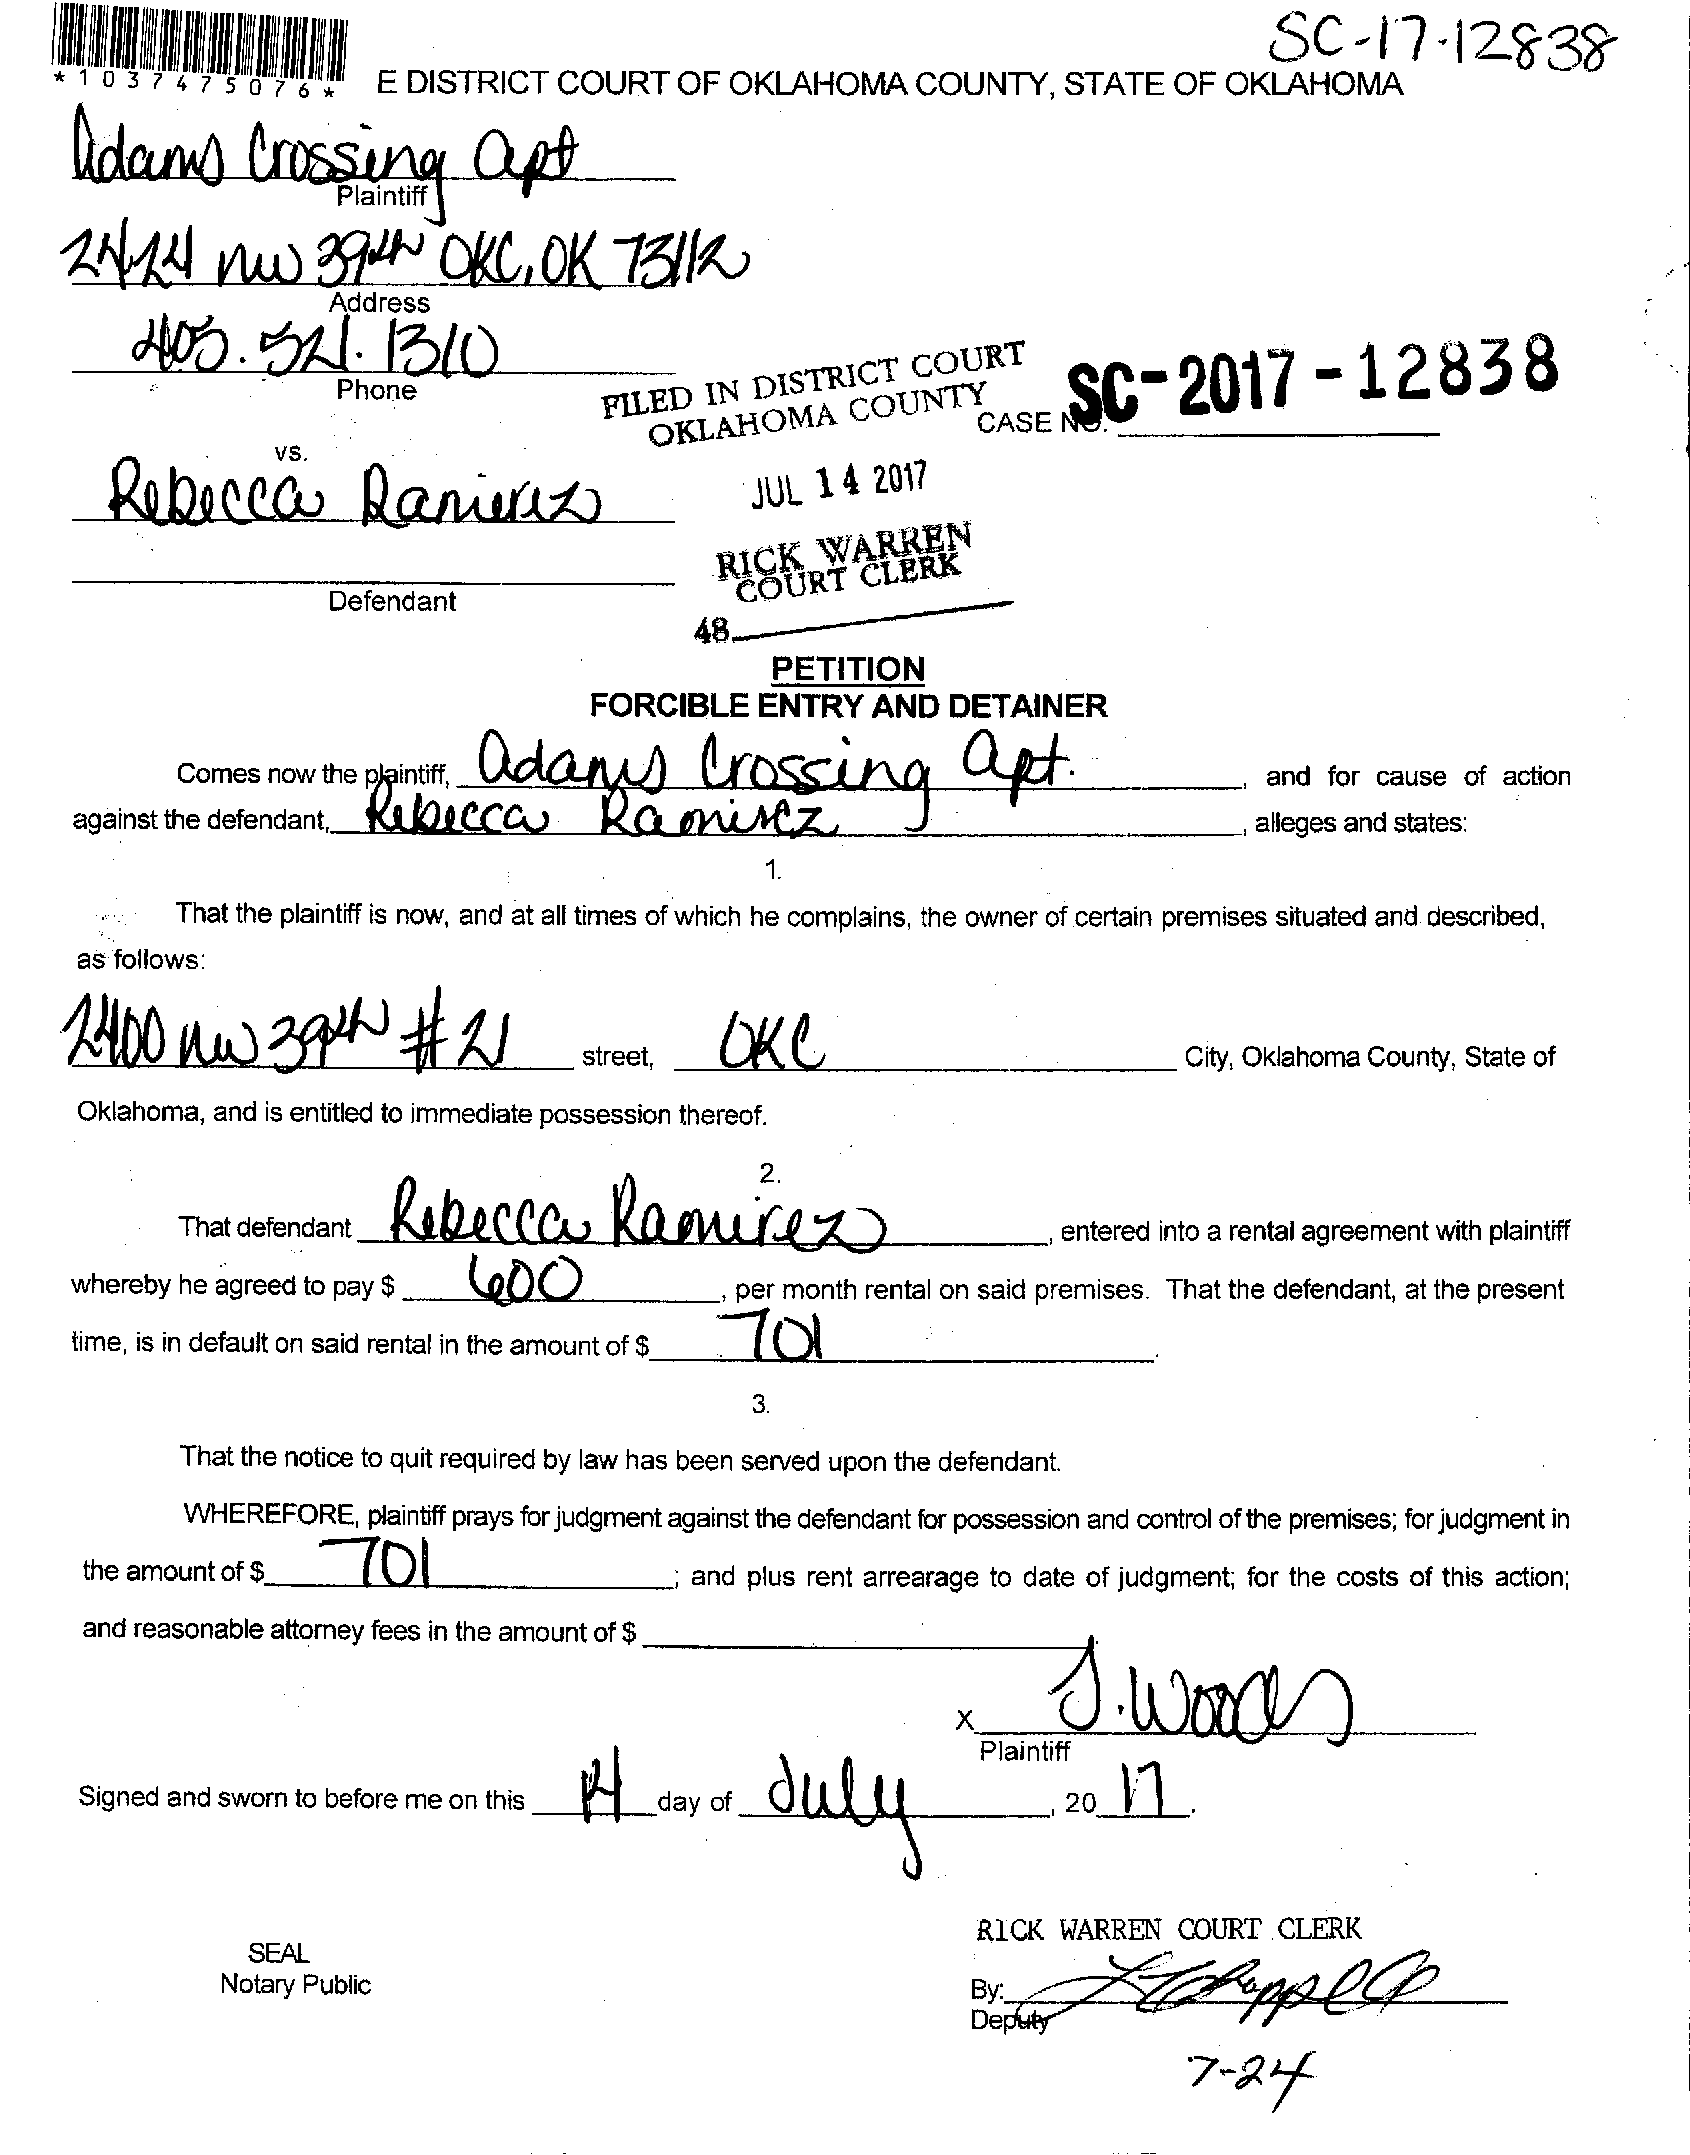 SC-17-12838
*1037475076*
E DISTRICT COURT OF OKLAHOMA COUNTY, STATE OF OKLAHOMA
Adams Crossing Apt
Plaintiff
2424 NW 39th OKC, OK 73112
Address
405.521.1310
Phone
FILED IN DISTRICT COURT
OKLAHOMA COUNTY
CASE NO. SC-2017-12838
vs.
JUL 14 2017
Rebecca Ramirez
RICK WARREN
COURT CLERK
Defendant
48
PETITION
FORCIBLE ENTRY AND DETAINER
Comes now the plaintiff, Adams Crossing Apt. , and for cause of action
against the defendant, Rebecca Ramirez , alleges and states:
1.
That the plaintiff is now, and at all times of which he complains, the owner of certain premises situated and described,
as follows:
2400 NW 39th #21 street, OKC City, Oklahoma County, State of
Oklahoma, and is entitled to immediate possession thereof.
2.
That defendant Rebecca Ramirez , entered into a rental agreement with plaintiff
whereby he agreed to pay $ 600 , per month rental on said premises. That the defendant, at the present
time, is in default on said rental in the amount of $ 701 .
3.
That the notice to quit required by law has been served upon the defendant.
WHEREFORE, plaintiff prays for judgment against the defendant for possession and control of the premises; for judgment in
the amount of $ 701 ; and plus rent arrearage to date of judgment; for the costs of this action;
and reasonable attorney fees in the amount of $
X J. Woods
Plaintiff
Signed and sworn to before me on this 14 day of July , 20 17 .
RICK WARREN COURT CLERK
SEAL
Notary Public
By:
Deputy
7-24